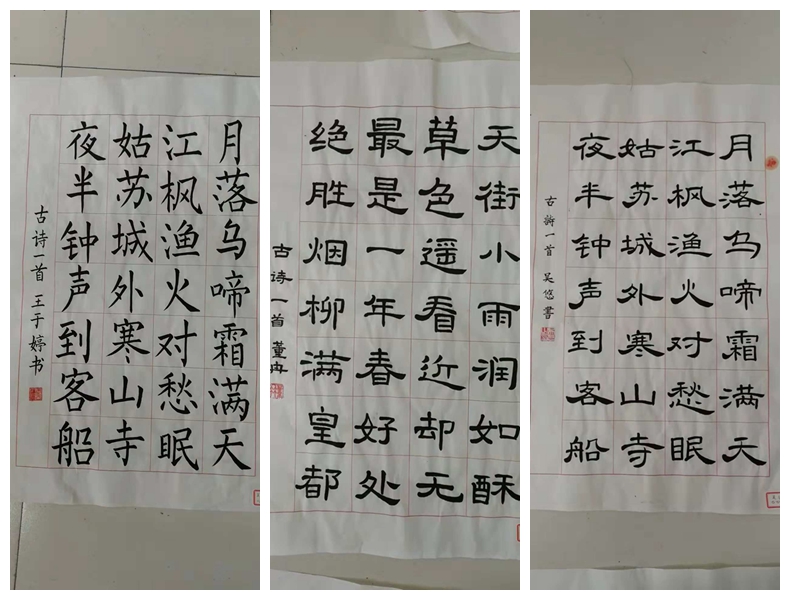 月落乌啼霜满天
江枫渔火对愁眠
姑苏城外寒山寺
夜半钟声到客船
古诗一首 王于婷书
天街小雨润如酥
草色遥看近却无
最是一年春好处
绝胜烟柳满皇都
古诗一首 董冉
月落乌啼霜满天
江枫渔火对愁眠
姑苏城外寒山寺
夜半钟声到客船
古詩一首 吴悠書